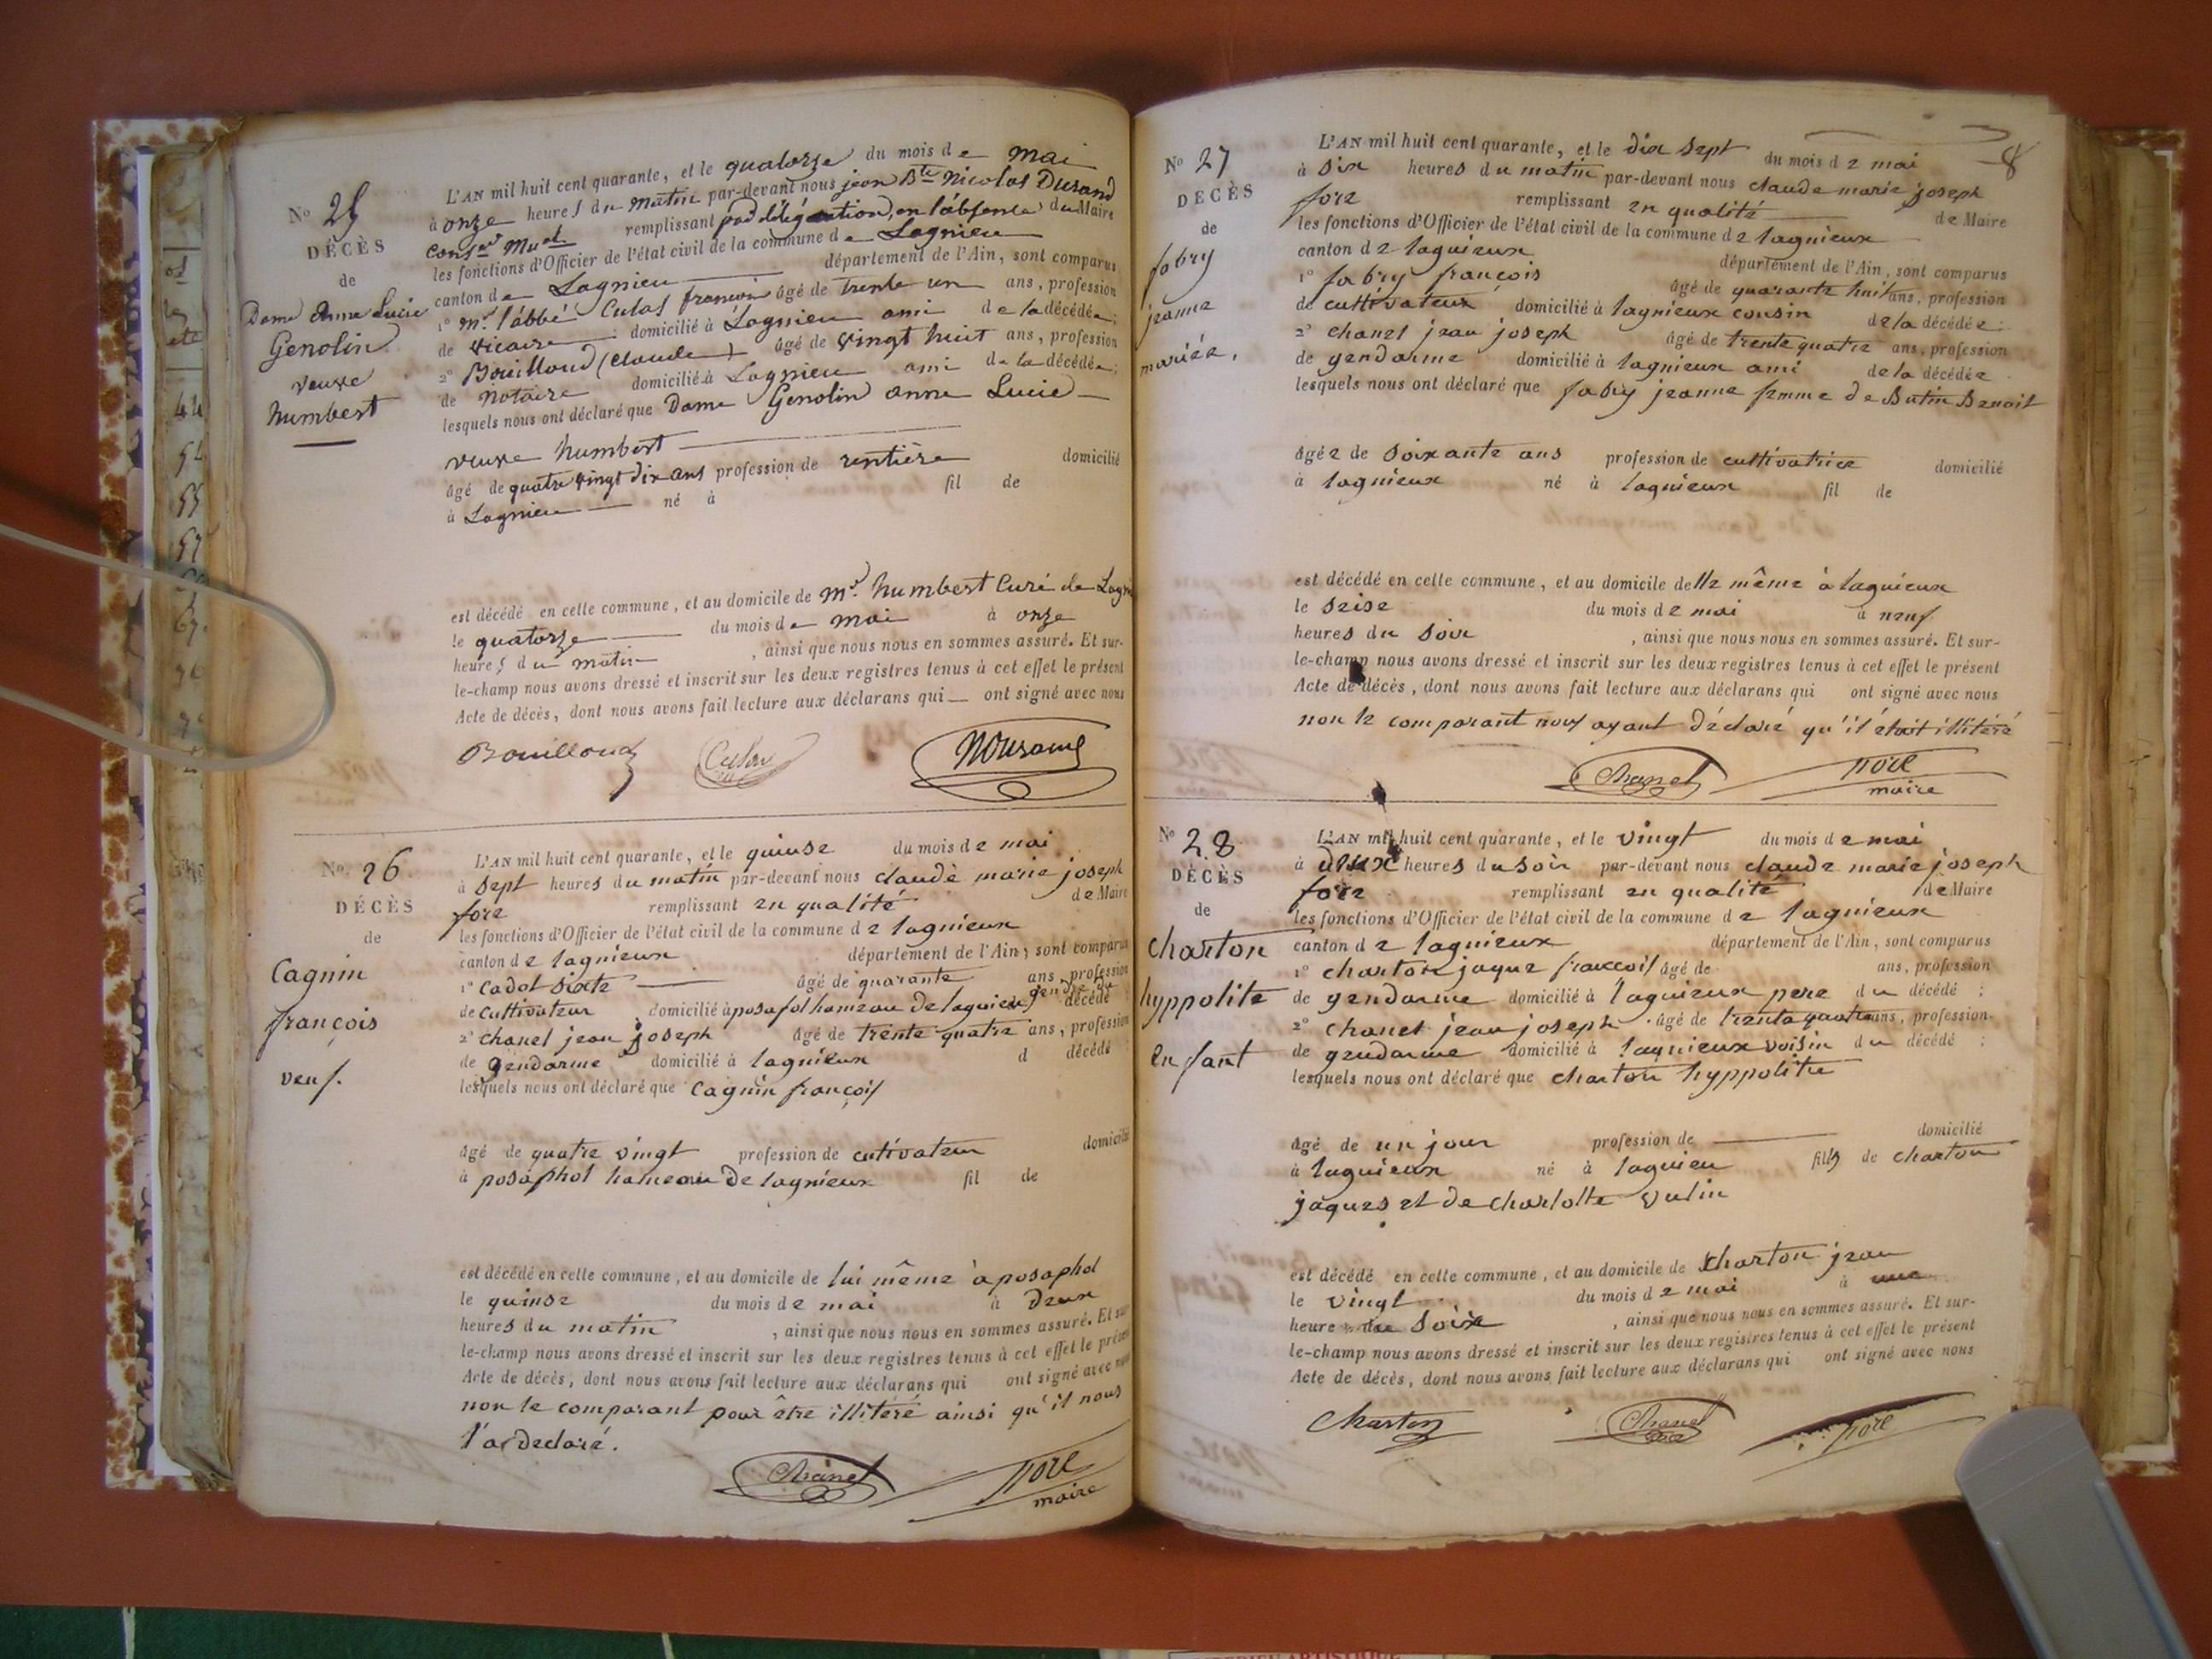 N° 25
DÉCÈS
de
Dame Anne Lucie
Genolin
veuve
humbert
L'AN mil huit cent quarante, et le quatorze du mois de mai
à onze heures du matin par-devant nous jean Bte Nicolas Durand
Conser Mual remplissant par délégation, en l'absence du Maire
les fonctions d'Officier de l'état civil de la commune de Lagnieu
canton de Lagnieu département de l'Ain, sont comparus
1° mr l'abbé Culas françois âgé de trente un ans, profession
de vicaire domicilié à Lagnieu ami de la décédée;
2° Bouilloud (Claude) âgé de vingt huit ans, profession
de notaire domicilié à Lagnieu ami de la décédée;
lesquels nous ont déclaré que Dame Genolin anne Lucie
veuve humbert
âgé de quatre vingt dix ans profession de rentière domicilié
à Lagnieu né à fil de
est décédé en cette commune, et au domicile de mr. humbert Curé de
le quatorze du mois de mai à onze
heures du matin, ainsi que nous nous en sommes assuré. Et sur-
le-champ nous avons dressé et inscrit sur les deux registres tenus à cet effet le présent
Acte de décès, dont nous avons fait lecture aux déclarans qui ont signé avec nous
Bouilloud Culas NDurand
N° 26
DÉCÈS
de
Cagnin
françois
veuf.
L'AN mil huit cent quarante, et le quinse du mois de mai
à sept heures du matin par-devant nous claude marie joseph
fore remplissant en qualité de Maire
les fonctions d'Officier de l'état civil de la commune de lagnieux
canton de lagnieux département de l'Ain, sont comparus
1° Cadot sixte âgé de quarante ans, profession
de cultivateur domicilié à posafol hameau de lagnieux gendre du décédé
2° chanel jean joseph âgé de trente quatre ans, profession
de gendarme domicilié à lagnieux d décédé
lesquels nous ont déclaré que Cagnin françois
âgé de quatre vingt profession de cutivateur domicilié
à posaphol hameau de lagnieux fil de
est décédé en cette commune, et au domicile de lui même à posaphol
le quinse du mois de mai à deux
heures du matin, ainsi que nous nous en sommes assuré. Et sur
le-champ nous avons dressé et inscrit sur les deux registres tenus à cet effet le présent
Acte de décès, dont nous avons fait lecture aux déclarans qui ont signé avec nous
non le comparant pour être illiteré ainsi qu'il nous
l'a declaré.
Chanel fore
maire
8
N° 27
DÉCÈS
de
fabry
jeanne
mariée,
L'AN mil huit cent quarante, et le dix sept du mois de mai
à six heures du matin par-devant nous claude marie joseph
fore remplissant en qualité de Maire
les fonctions d'Officier de l'état civil de la commune de lagnieux
canton de lagnieux département de l'Ain, sont comparus
1° fabry françois âgé de quarante huit ans, profession
de cultivateur domicilié à lagnieux cousin de la décédée;
2° chanel jean joseph âgé de trente quatre ans, profession
de gendarme domicilié à lagnieux ami de la décédée
lesquels nous ont déclaré que fabry jeanne femme de Butin Benoit
âgée de soixante ans profession de cultivatrice domicilié
à lagnieux né à lagnieux fil de
est décédé en cette commune, et au domicile d'elle même à lagnieux
le seise du mois de mai à neuf
heures du soir, ainsi que nous nous en sommes assuré. Et sur-
le-champ nous avons dressé et inscrit sur les deux registres tenus à cet effet le présent
Acte de décès, dont nous avons fait lecture aux déclarans qui ont signé avec nous
non le comparant nous ayant déclaré qu'il était illitéré
Chanel fore
maire
N° 28
DÉCÈS
de
charton
hyppolite
enfant
L'AN mil huit cent quarante, et le vingt du mois de mai
à deux heures du soir par-devant nous claude marie joseph
fore remplissant en qualité de Maire
les fonctions d'Officier de l'état civil de la commune de lagnieux
canton de lagnieux département de l'Ain, sont comparus
1° charton jaque françois âgé de ans, profession
de gendarme domicilié à lagnieux pere du décédé;
2° chanel jean joseph âgé de trente quatre ans, profession
de gendarme domicilié à lagnieux voisin du décédé;
lesquels nous ont déclaré que charton hyppolite
âgé de un jour profession de domicilié
à lagnieux né à lagnieu fils de charton
jaques et de charlotte vulin
est décédé en cette commune, et au domicile de charton jean
le vingt du mois de mai à une
heure du soir, ainsi que nous nous en sommes assuré. Et sur-
le-champ nous avons dressé et inscrit sur les deux registres tenus à cet effet le présent
Acte de décès, dont nous avons fait lecture aux déclarans qui ont signé avec nous
Charton Chanel fore